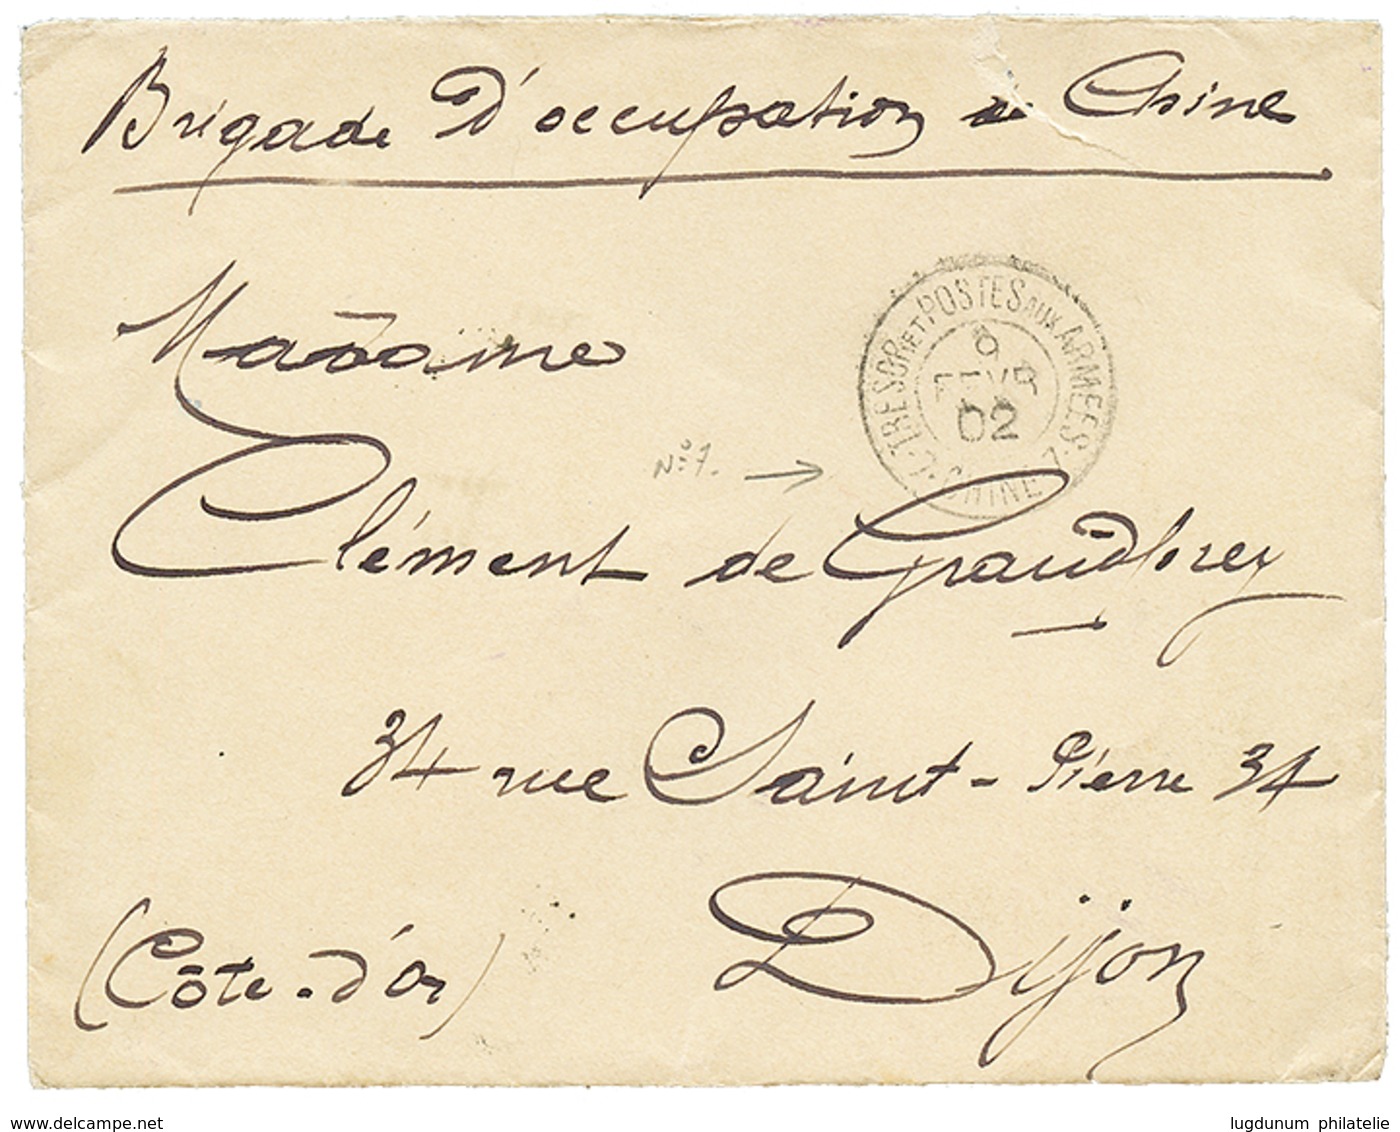 Brigade d'occupation de Chine
TRESOR ET POSTES AUX ARMEES
FEVR
02
CHINE
Madame
N°1.
Clément de Grandprey
34 rue Saint-Pierre 34
Dijon
(Côte-d'Or)
www.delcampe.net
lugdunum philatelie